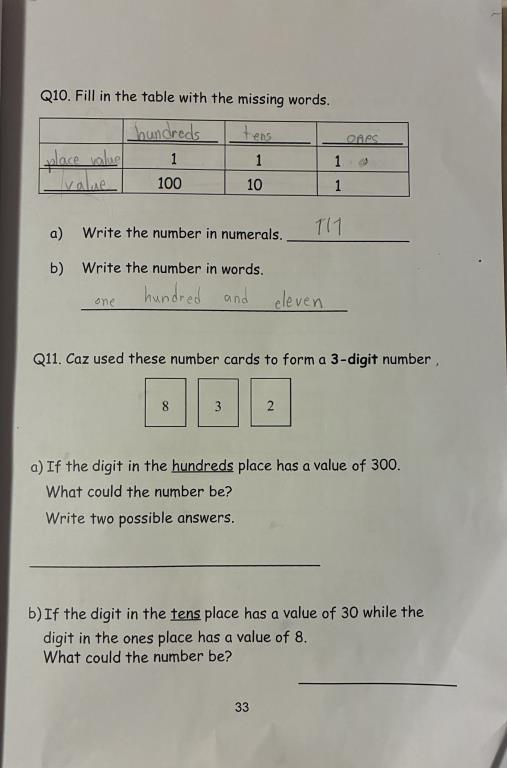 Q10. Fill in the table with the missing words.
hundreds tens ones
place value 1 1 1
value 100 10 1
a) Write the number in numerals. 111
b) Write the number in words.
one hundred and eleven
Q11. Caz used these number cards to form a 3-digit number ,
8 3 2
a) If the digit in the hundreds place has a value of 300.
What could the number be?
Write two possible answers.
b) If the digit in the tens place has a value of 30 while the
digit in the ones place has a value of 8.
What could the number be?
33